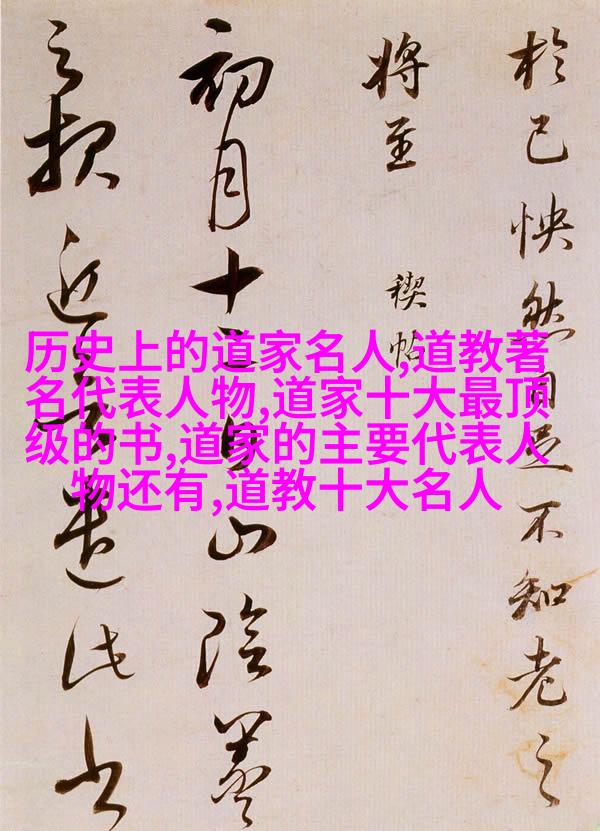 於己怏然自足不知老之
將至
禊帖
初月十二日山陰羲
之報近欲遣此書
历史上的道家名人,道教著
名代表人物,道家十大最顶
级的书,道家的主要代表人
物还有,道教十大名人